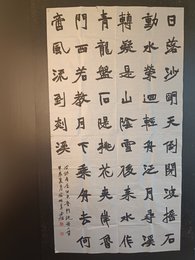 日落沙明天倒開波搖石
動水縈迴輕舟泛月尋溪
轉疑是山陰雪後來水作
青龍盤石隄桃花夾岸魯
門西若教月下乘舟去何
啻風流到剡溪